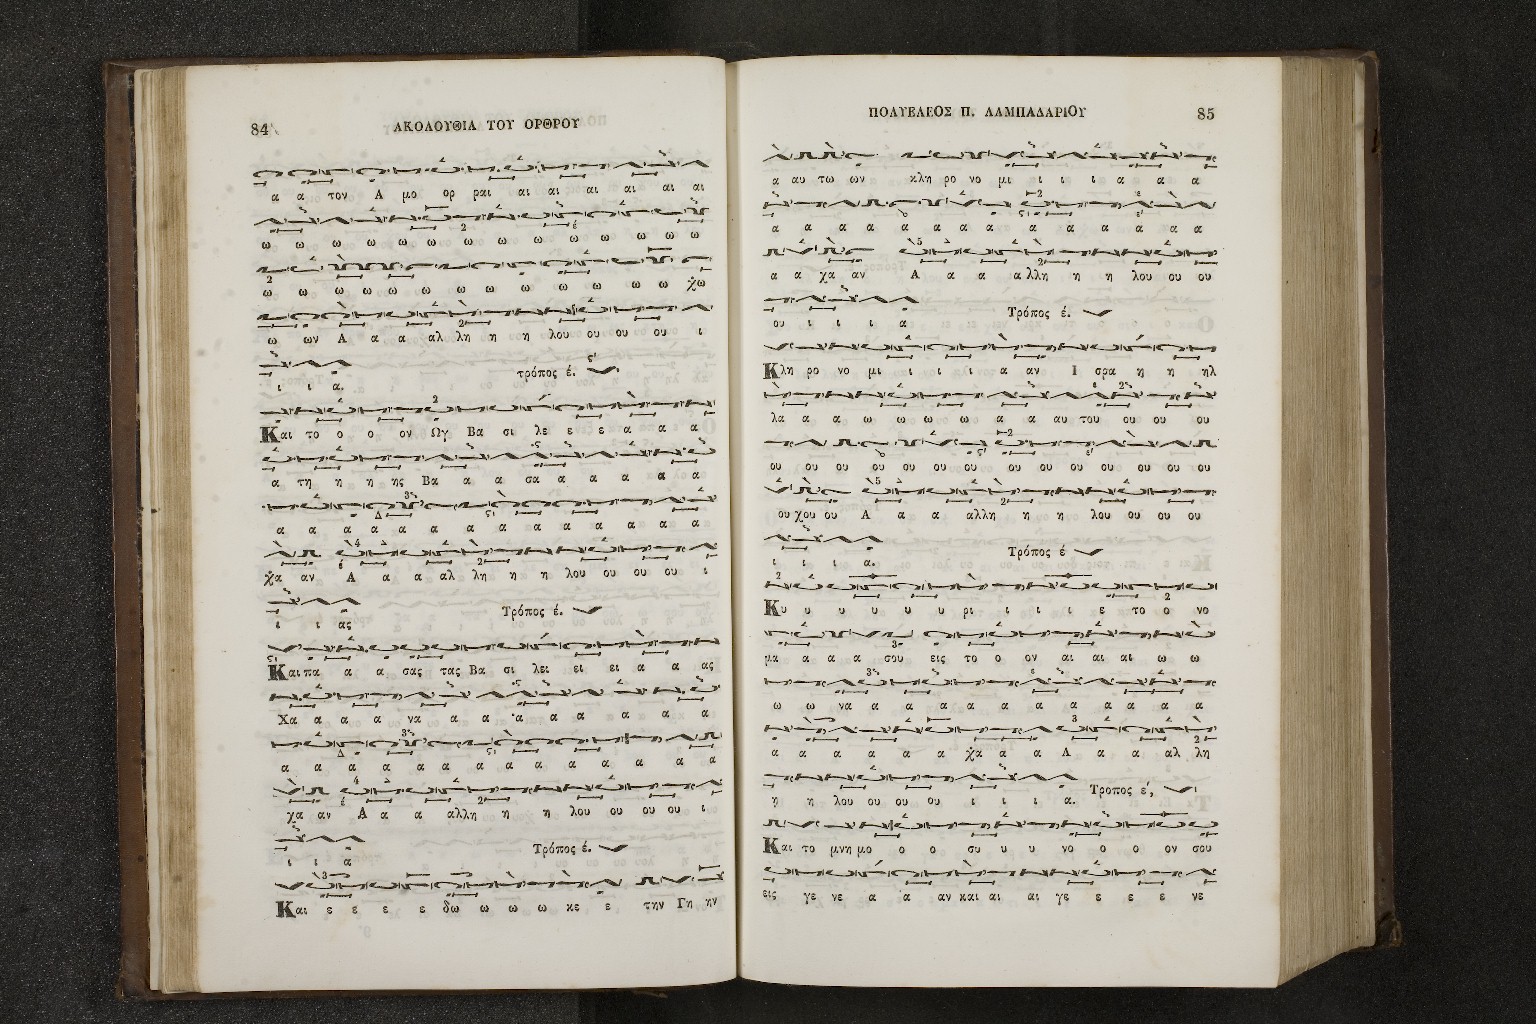 84
ΑΚΟΛΟΥΘΙΑ ΤΟΥ ΟΡΘΡΟΥ
α α τον Α μο ορ ραι αι αι αι αι αι αι
ω ω ω ω ω ω ω ω ω ω ω ω ω ω
ω ω ω ω ω ω ω ω ω ω ω ω ω χω
ω ων Α α α αλ λη η η λου ου ου ου ι
ι ι α. τρόπος έ.
Και το ο ο ον Ωγ Βα σι λε ε ε α α α
α τη η η ης Βα α α σα α α α α α
α α α α α α α α α α α α α α
χα αν Α α α αλ λη η η λου ου ου ου ι
ι ι ας Τρόπος έ.
Και πα α α σας τας Βα σι λει ει ει α α ας
Χα α α α να α α α α α α α α α
α α α α α α α α α α α α α α
χα αν Α α α αλλη η η λου ου ου ου ι
ι ι α Τρόπος έ.
Και ε ε ε ε δω ω ω ω κε ε την Γη ην
ΠΟΛΥΕΛΕΟΣ Π. ΛΑΜΠΑΔΑΡΙΟΥ
85
α αυ τω ων κλη ρο νο μι ι ι ι α α α
α α α α α α α α α α α α α α
α α χα αν Α α α αλλη η η λου ου ου
ου ι ι ι α Τρόπος έ.
Κλη ρο νο μι ι ι ι α αν Ι σρα η η ηλ
λα α α ω ω ω ω α α αυ του ου ου ου
ου ου ου ου ου ου ου ου ου ου ου ου ου ου
ου χου ου Α α α αλλη η η λου ου ου ου
ι ι ι α. Τρόπος έ
Κυ υ υ υ υ υ ρι ι ι ι ε το ο νο
μα α α α σου εις το ο ον αι αι αι ω ω
ω ω να α α α α α α α α α α α
α α α α α α χα α α Α α α αλ λη
η η λου ου ου ου ι ι ι α. Τροπος έ,
Και το μνη μο ο ο συ υ υ νο ο ο ον σου
εις γε νε α α αν και αι αι γε ε ε ε νε